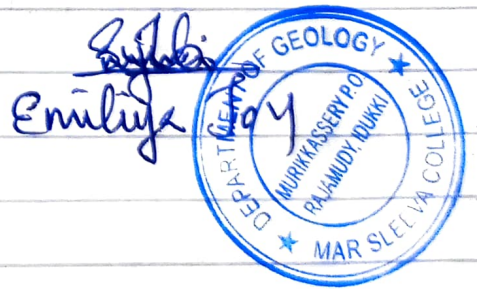 Emiliya Joy
DEPARTMENT OF GEOLOGY
MAR SLEEVA COLLEGE
MURIKKASSERY P.O
RAJAMUDY, IDUKKI